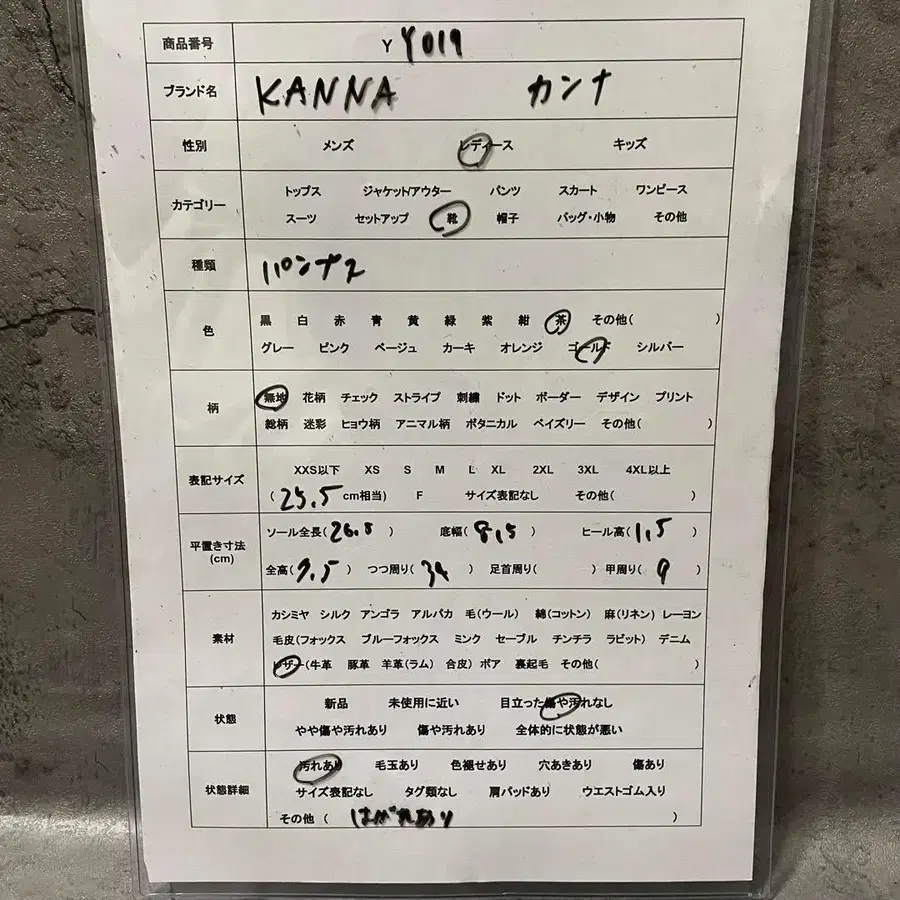 商品番号 Y Y019
ブランド名 KANNA カンナ
性別 メンズ レディース キッズ
カテゴリー トップス ジャケット/アウター パンツ スカート ワンピース
スーツ セットアップ 靴 帽子 バッグ・小物 その他
種類 パンプス
色 黒 白 赤 青 黄 緑 紫 紺 茶 その他( )
グレー ピンク ベージュ カーキ オレンジ ゴールド シルバー
柄 無地 花柄 チェック ストライプ 刺繍 ドット ボーダー デザイン プリント
総柄 迷彩 ヒョウ柄 アニマル柄 ボタニカル ペイズリー その他( )
表記サイズ XXS以下 XS S M L XL 2XL 3XL 4XL以上
(25.5cm相当) F サイズ表記なし その他( )
平置き寸法 (cm) ソール全長(26.5) 底幅(8,5) ヒール高(1,5)
全高(9.5) つつ周り(34) 足首周り( ) 甲周り(9)
素材 カシミヤ シルク アンゴラ アルパカ 毛(ウール) 綿(コットン) 麻(リネン) レーヨン
毛皮(フォックス ブルーフォックス ミンク セーブル チンチラ ラビット) デニム
レザー(牛革 豚革 羊革(ラム) 合皮) ボア 裏起毛 その他( )
状態 新品 未使用に近い 目立った傷や汚れなし
やや傷や汚れあり 傷や汚れあり 全体的に状態が悪い
状態詳細 汚れあり 毛玉あり 色褪せあり 穴あきあり 傷あり
サイズ表記なし タグ類なし 肩パッドあり ウエストゴム入り
その他( はがれあり )